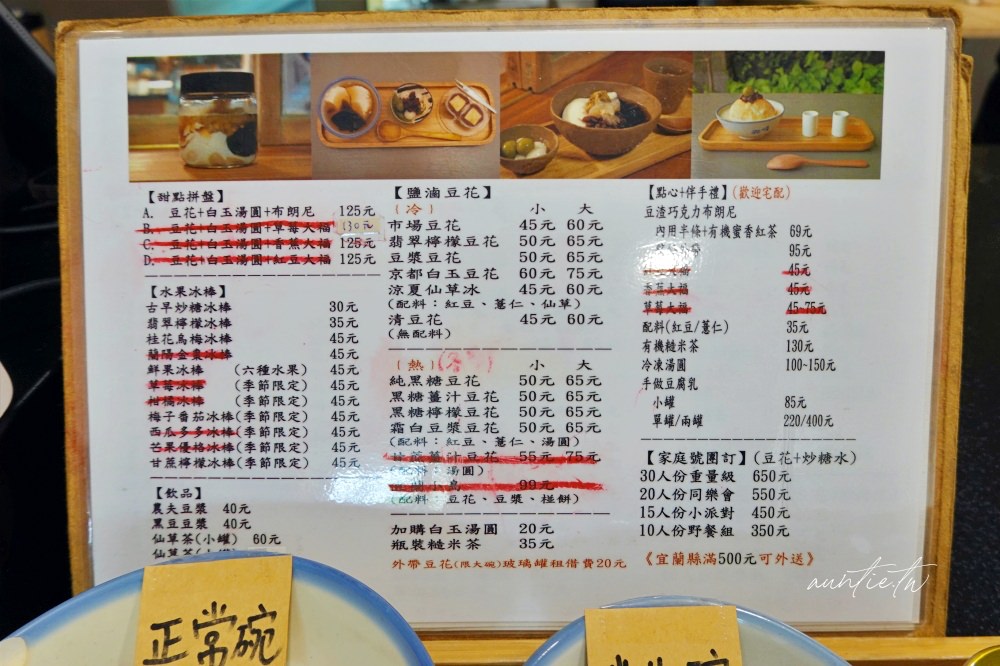 【甜點拼盤】
A. 豆花+白玉湯圓+布朗尼 125元
B. 豆花+白玉湯圓+草莓大福 130元
C. 豆花+白玉湯圓+香蕉大福 125元
D. 豆花+白玉湯圓+紅豆大福 125元
【水果冰棒】
古早炒糖冰棒 30元
翡翠檸檬冰棒 35元
桂花烏梅冰棒 45元
蘭陽金棗冰棒 45元
鮮果冰棒 (六種水果) 45元
草莓冰棒 (季節限定) 45元
柑橘冰棒 (季節限定) 45元
梅子番茄冰棒(季節限定) 45元
西瓜多多冰棒(季節限定) 45元
芒果優格冰棒(季節限定) 45元
甘蔗檸檬冰棒(季節限定) 45元
【飲品】
農夫豆漿 40元
黑豆豆漿 40元
仙草茶(小罐) 60元
仙草茶
【鹽滷豆花】
(冷) 小 大
市場豆花 45元 60元
翡翠檸檬豆花 50元 65元
豆漿豆花 50元 65元
京都白玉豆花 60元 75元
涼夏仙草冰 45元 60元
(配料：紅豆、薏仁、仙草)
清豆花 45元 60元
(無配料)
(熱) 小 大
純黑糖豆花 50元 65元
黑糖薑汁豆花 50元 65元
黑糖檸檬豆花 50元 65元
霜白豆漿豆花 50元 65元
(配料：紅豆、薏仁、湯圓)
甘蔗薑汁豆花 55元 75元
(配料：湯圓)
宜蘭小島 99元
(配料：豆花、豆漿、椪餅)
加購白玉湯圓 20元
瓶裝糙米茶 35元
外帶豆花(限大碗)玻璃罐租借費20元
【點心+伴手禮】(歡迎宅配)
豆渣巧克力布朗尼
內用半條+有機蜜香紅茶 69元
95元
45元
香蕉大福 45元
草莓大福 45-75元
配料(紅豆/薏仁) 35元
有機糙米茶 130元
冷凍湯圓 100~150元
手做豆腐乳
小罐 85元
單罐/兩罐 220/400元
【家庭號團訂】(豆花+炒糖水)
30人份重量級 650元
20人份同樂會 550元
15人份小派對 450元
10人份野餐組 350元
《宜蘭縣滿500元可外送》
auntie.tw
正常碗